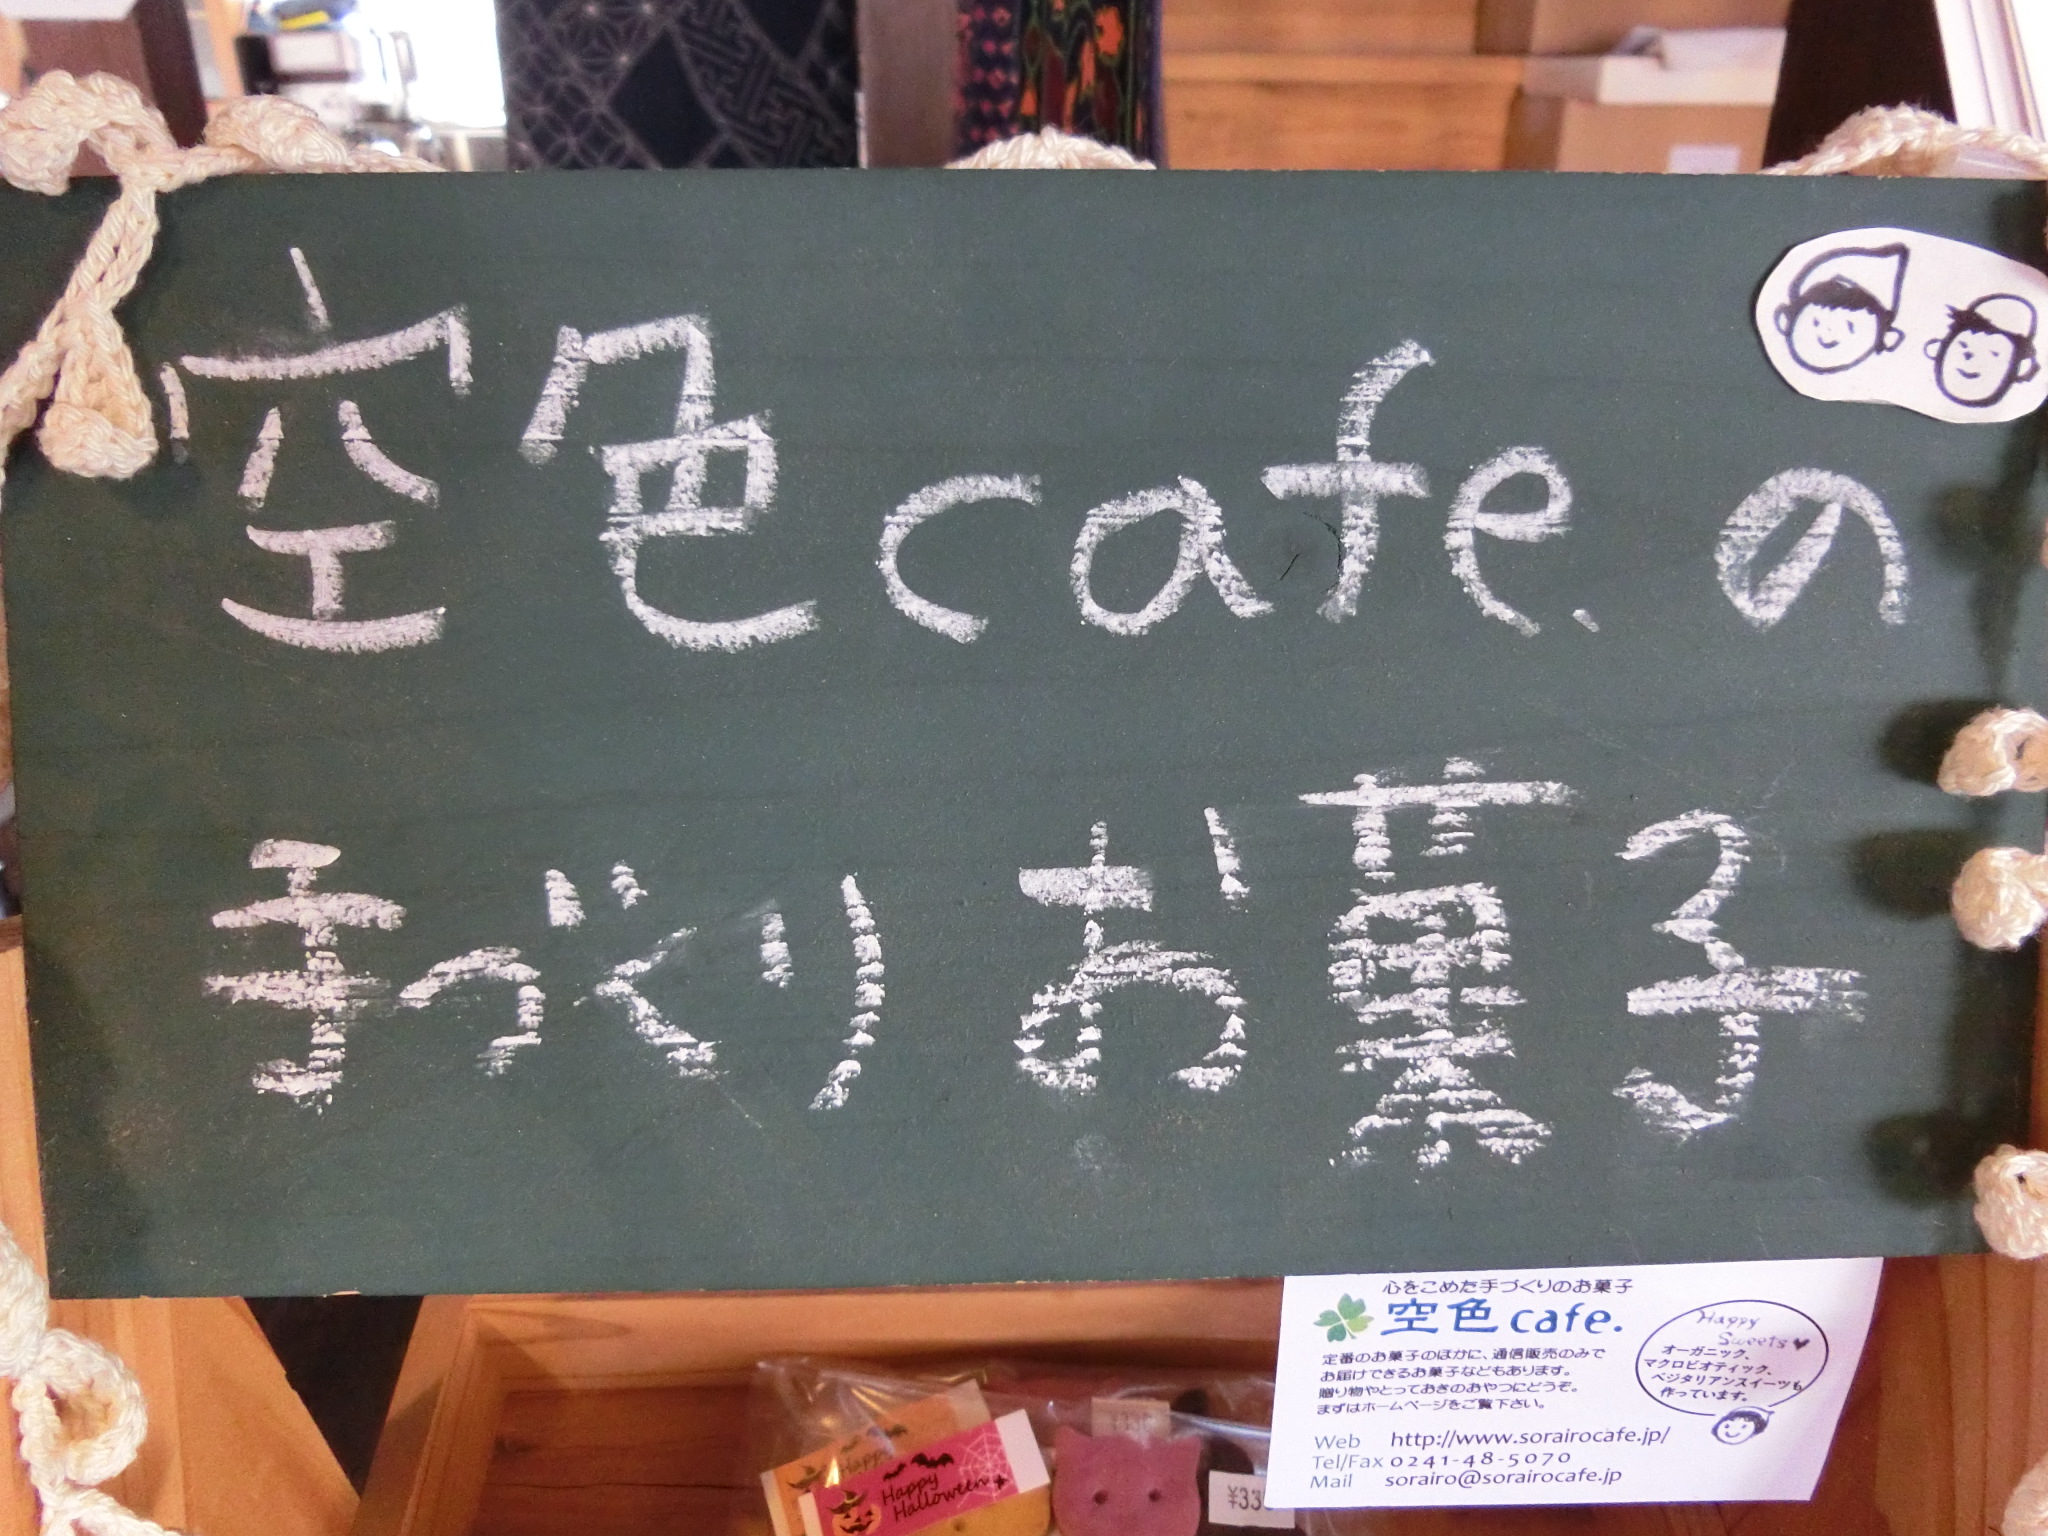 空色cafe.の
手づくりお菓子
心をこめた手づくりのお菓子
空色cafe.
定番のお菓子のほかに、通信販売のみで
お届けできるお菓子などもあります。
贈り物やとっておきのおやつにどうぞ。
まずはホームページをご覧下さい。
Happy
Sweets♥
オーガニック、
マクロビオティック、
ベジタリアンスイーツも
作っています。
Web http://www.sorairocafe.jp/
Tel/Fax 0241-48-5070
Mail sorairo@sorairocafe.jp
Happy
Happy
Halloween